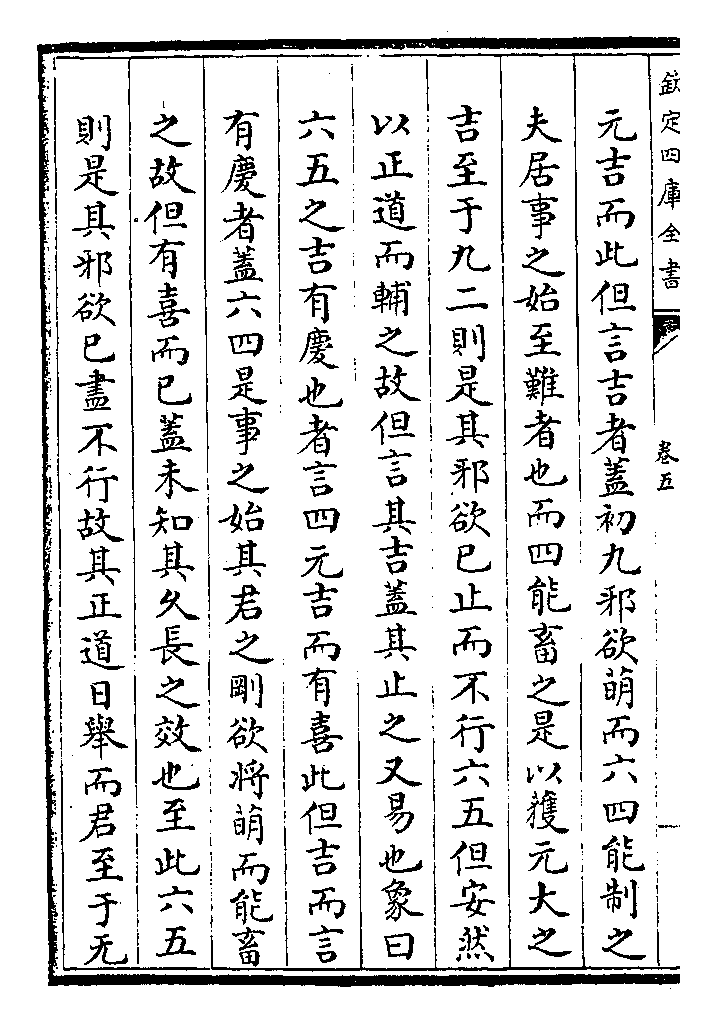 欽定四庫全書
卷五
元吉而此但言吉者蓋初九邪欲萌而六四能制之
夫居事之始至難者也而四能畜之是以獲元大之
吉至于九二則是其邪欲已止而不行六五但安然
以正道而輔之故但言其吉蓋其止之又易也象曰
六五之吉有慶也者言四元吉而有喜此但吉而言
有慶者蓋六四是事之始其君之剛欲將萌而能畜
之故但有喜而已蓋未知其久長之效也至此六五
則是其邪欲已盡不行故其正道日舉而君至于无